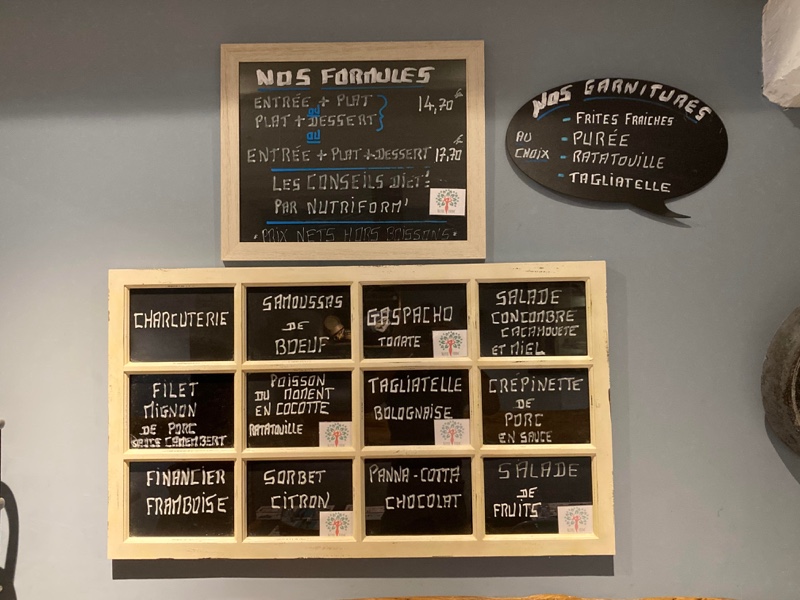 NOS FORMULES
ENTRÉE + PLAT
ou
PLAT + DESSERT
14,70€
ou
ENTRÉE + PLAT + DESSERT 17,70€
LES CONSEILS DIET'
PAR NUTRIFORM'
• PRIX NETS HORS BOISSONS •
NOS GARNITURES
AU CHOIX
- FRITES FRAÎCHES
- PURÉE
- RATATOUILLE
- TAGLIATELLE
CHARCUTERIE
SAMOUSSAS
DE
BOEUF
GASPACHO
TOMATE
SALADE
CONCOMBRE
CACAHOUETE
ET MIEL
FILET
MIGNON
DE PORC
SAUCE CAMEMBERT
POISSON
DU MOMENT
EN COCOTTE
RATATOUILLE
TAGLIATELLE
BOLOGNAISE
CRÉPINETTE
DE
PORC
EN SAUCE
FINANCIER
FRAMBOISE
SORBET
CITRON
PANNA-COTTA
CHOCOLAT
SALADE
DE
FRUITS